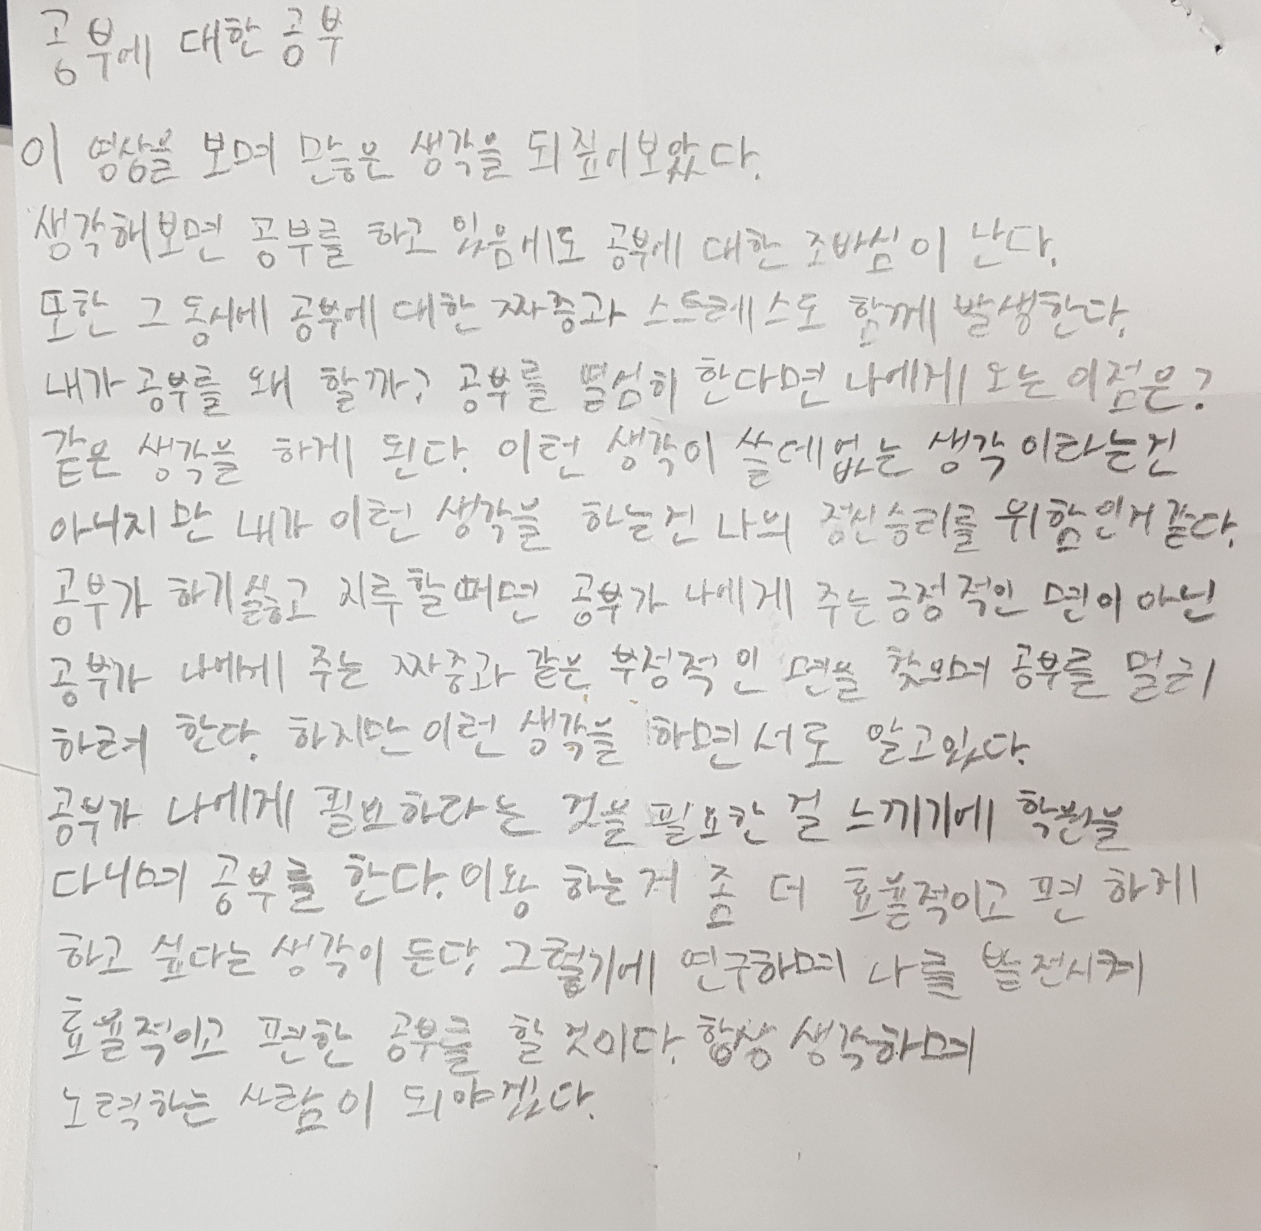 공부에 대한 공부
이 영상을 보며 많은 생각을 되짚어보았다.
생각해보면 공부를 하고 있음에도 공부에 대한 조바심이 난다.
또한 그 동시에 공부에 대한 짜증과 스트레스도 함께 발생한다.
내가 공부를 왜 할까? 공부를 열심히 한다면 나에게 오는 이점은?
같은 생각을 하게 된다. 이런 생각이 쓸데없는 생각이라는건
아니지만 내가 이런 생각을 하는건 나의 정신승리를 위함인거같다.
공부가 하기싫고 지루할때면 공부가 나에게 주는 긍정적인 면이 아닌
공부가 나에게 주는 짜증과 같은 부정적인 면을 찾으며 공부를 멀리
하려 한다. 하지만 이런 생각을 하면서도 알고있다.
공부가 나에게 필요하다는 것을 필요한 걸 느끼기에 학원을
다니며 공부를 한다. 이왕 하는거 좀 더 효율적이고 편하게
하고 싶다는 생각이 든다. 그렇기에 연구하며 나를 발전시켜
효율적이고 편한 공부를 할 것이다. 항상 생각하며
노력하는 사람이 되야겠다.